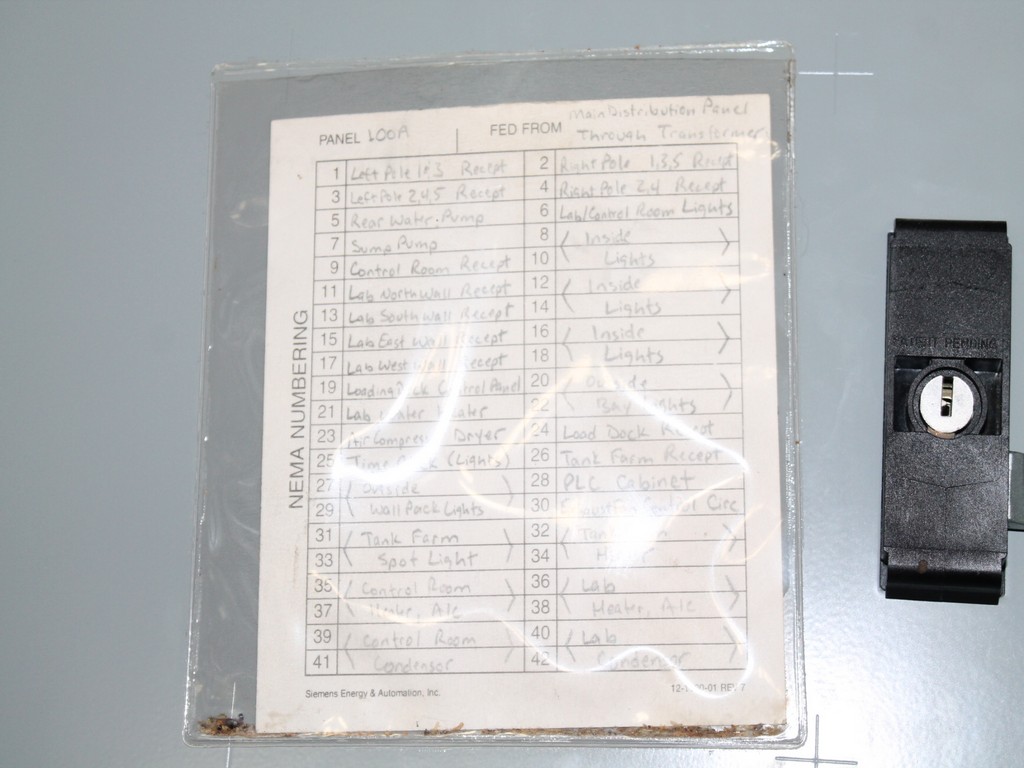 PANEL LOOA FED FROM Main Distribution Panel
Through Transformer
NEMA NUMBERING
1 Left Pole 1+3 Recept 2 Right Pole 1,3,5 Recept
3 Left Pole 2,4,5 Recept 4 Right Pole 2,4 Recept
5 Rear Water Pump 6 Lab/Control Room Lights
7 Sump Pump 8 Inside
9 Control Room Recept 10 Lights
11 Lab North Wall Recept 12 Inside
13 Lab South Wall Recept 14 Lights
15 Lab East Wall Recept 16 Inside
17 Lab West Wall Recept 18 Lights
19 Loading Dock Control Panel 20 Outside
21 Lab Water Heater 22 Bay Lights
23 Air Compressor Dryer 24 Load Dock Recept
25 Time Clock (Lights) 26 Tank Farm Recept
27 Outside 28 PLC Cabinet
29 Wall Pack Lights 30 Exhaust Fan Control Circ
31 Tank Farm 32 Tank
33 Spot Light 34
35 Control Room 36 Lab
37 Heater, A/c 38 Heater, A/c
39 Control Room 40 Lab
41 Condensor 42 Condensor
Siemens Energy & Automation, Inc. REV 7
PATENT PENDING